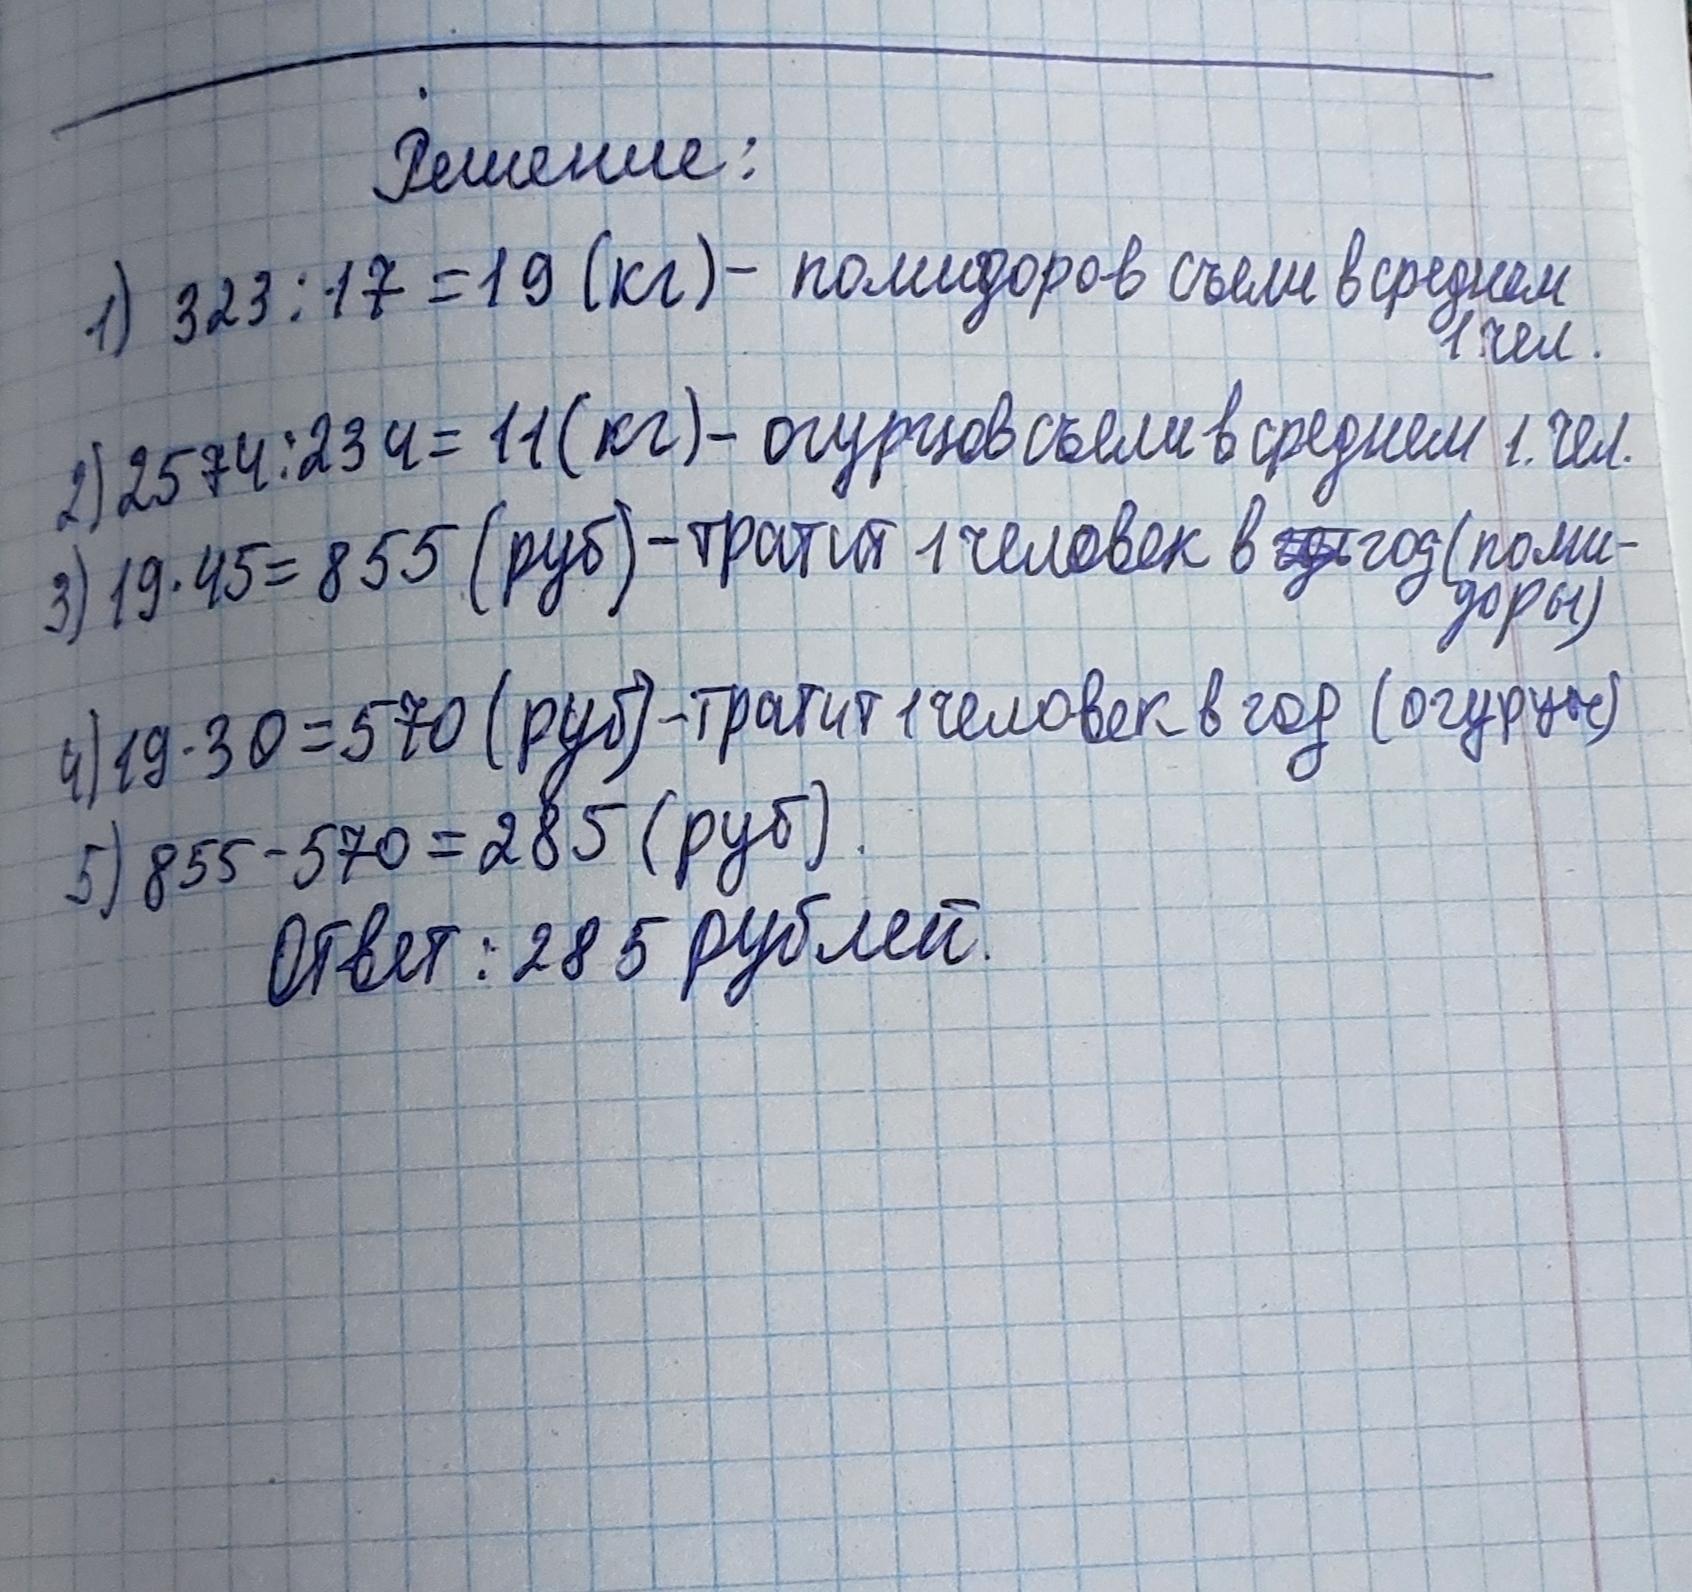 Решение:
1) 323:17=19 (кг)- помидоров съели в среднем
1 чел.
2) 2574:234=11(кг)- огурцов съели в среднем 1. чел.
3) 19·45=855 (руб)-тратит 1 человек в год (поми-
доры)
4) 19·30=570 (руб)-тратит 1 человек в год (огурцы)
5) 855-570=285 (руб).
Ответ: 285 рублей.